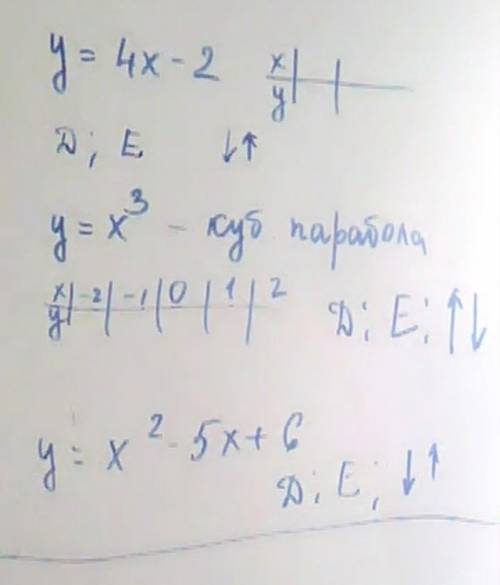 y = 4x - 2 x y
D; E ↓↑
y = x³ - куб парабола
x -2 -1 0 1 2
y D; E; ↑↓
y = x² - 5x + 6
D; E; ↓↑